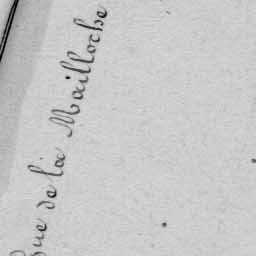 Rue de la Mailloche